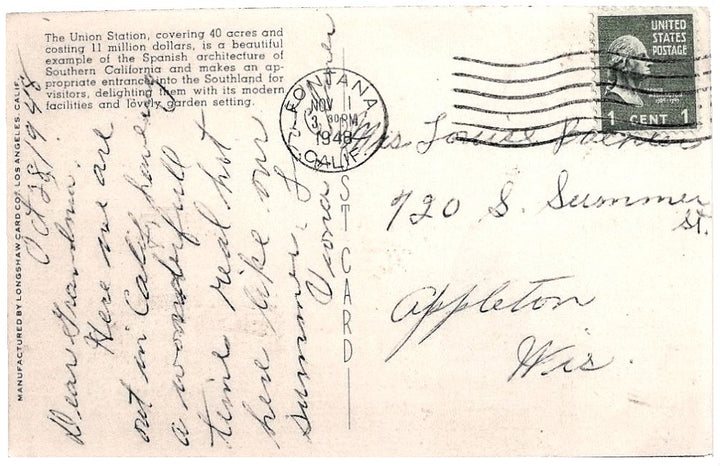 The Union Station, covering 40 acres and
costing 11 million dollars, is a beautiful
example of the Spanish architecture of
Southern California and makes an ap-
propriate entrance into the Southland for
visitors, delighting them with its modern
facilities and lovely garden setting.
MANUFACTURED BY LONGSHAW CARD CO. LOS ANGELES, CALIF.
Oct 28/1948
Dear Grandma.
Here we are
out in Calif, having
a wonderfull
time real hot
here like our
summer.
FONTANA
NOV 1
3 30PM
1948
CALIF.
UNITED
STATES
POSTAGE
1 CENT 1
POST CARD
Mrs Louise
720 S. Summer
St.
Appleton
Wis.